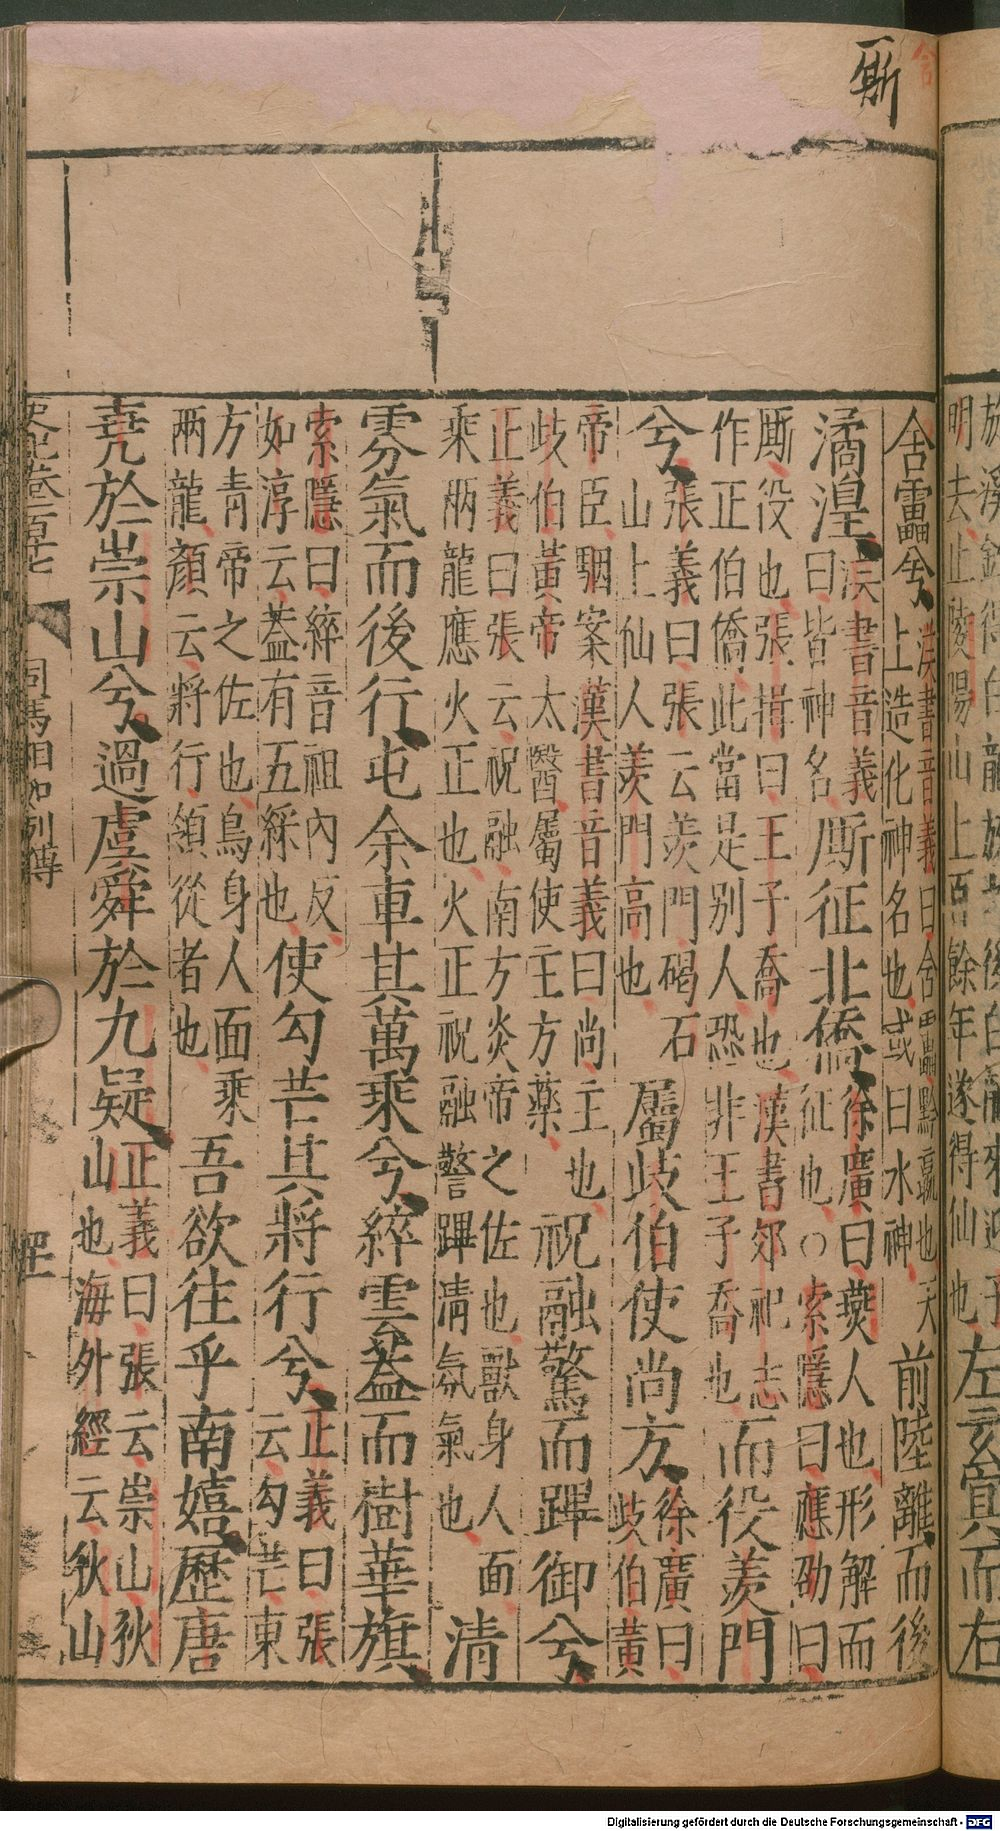 舍
厮
釣得白龍放之後白龍來迎子
明去止陵陽山上百餘年遂得仙也
左玄冥而右
含靁兮漢書音義曰含靁黔嬴也天
上造化神名也或曰水神
前陸離而後
潏湟漢書音義
曰皆神名
厮征北僑徐廣曰燕人也形解而
征也○索隱曰應劭曰
厮役也張揖曰王子喬也漢書郊祀志
作正伯僑此當是別人恐非王子喬也
而役羨門
兮張義曰張云羨門碣石
山上仙人羨門高也
屬歧伯使尚方徐廣曰
歧伯黃
帝臣駰案漢書音義曰尚主也
歧伯黃帝太醫屬使主方藥
祝融驚而蹕御兮
正義曰張云祝融南方炎帝之佐也獸身人面
乘兩龍應火正也火正祝融警蹕清氛氣也
清
雰氣而後行屯余車其萬乘兮綷雲蓋而樹華旗
索隱曰綷音祖內反
如淳云蓋有五綵也
使勾芒其將行兮正義曰張
云勾芒東
方青帝之佐也鳥身人面乘
兩龍顏云將行領從者也
吾欲往乎南嬉歷唐
堯於崇山兮過虞舜於九疑正義曰張云崇山狄
山也海外經云狄山
史記卷一百十七 司馬相如列傳
Digitalisierung gefördert durch die Deutsche Forschungsgemeinschaft - DFG